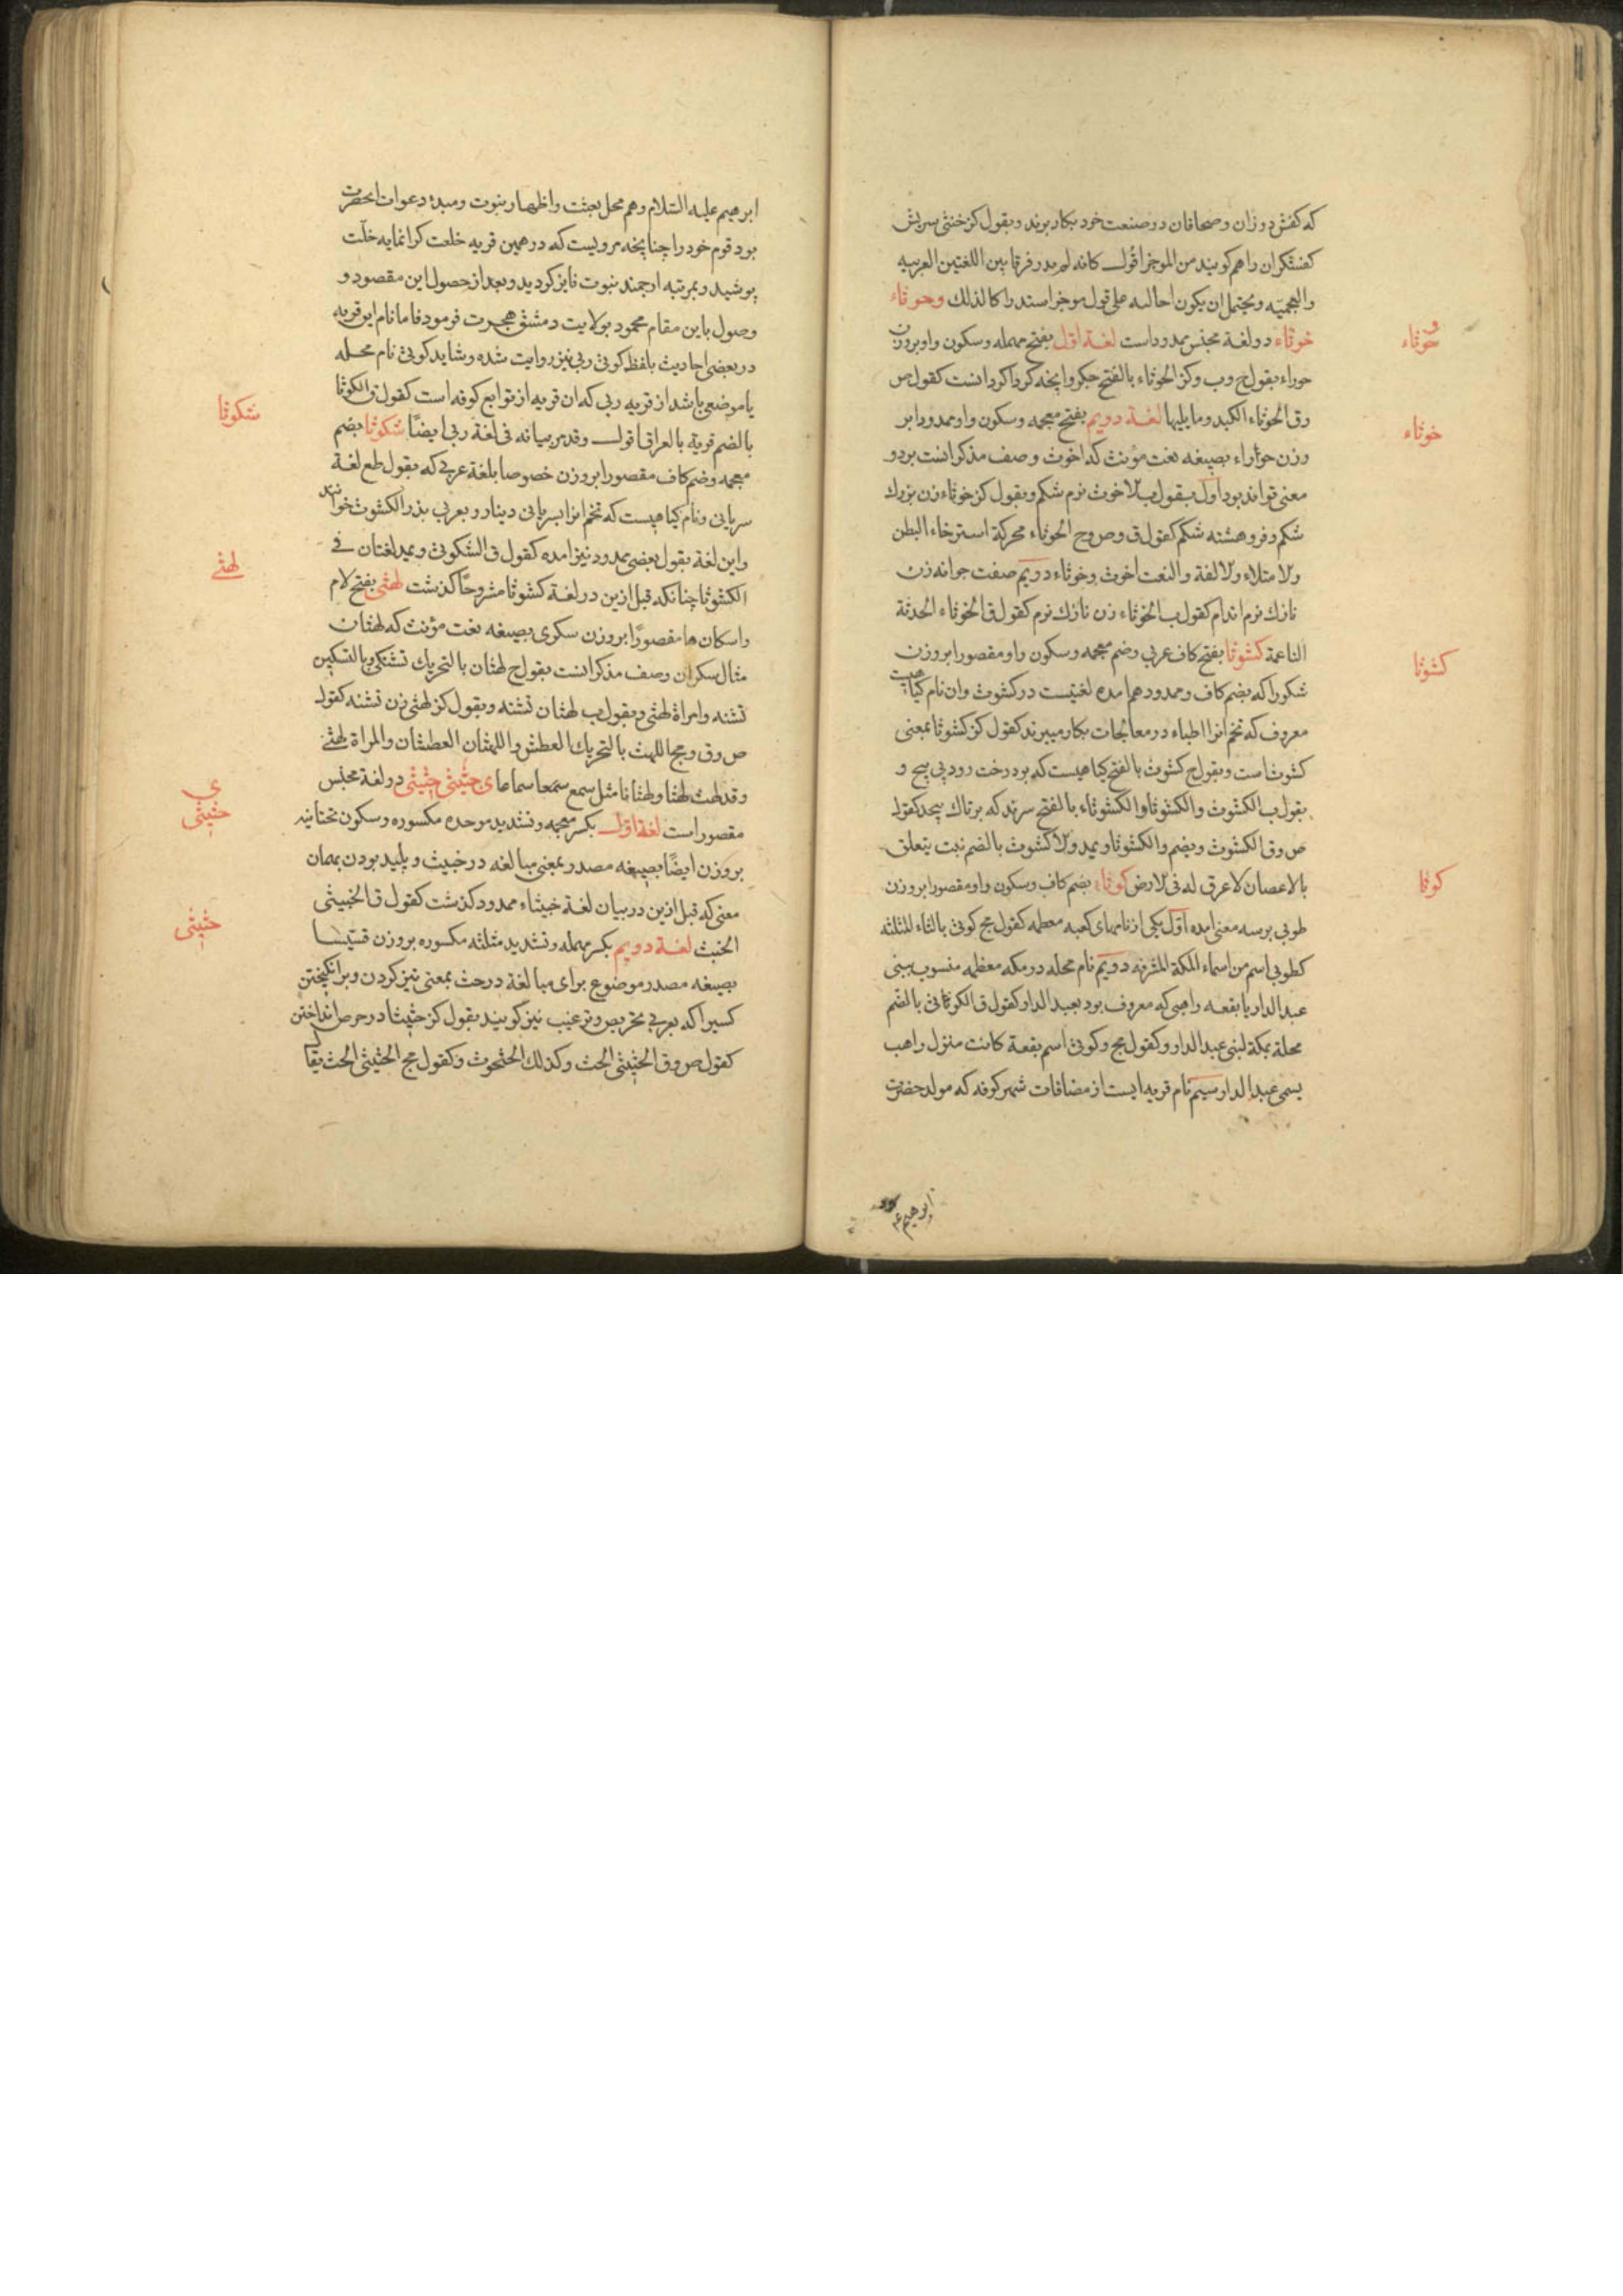 که کفش دوزان و صحافان در صنعت خود بکار برند و بقول کز خنثی سریش
کفشگران را هم گویند من الموخر اقول کانه لم یدر فرقا بین اللغتین العربیه
والعجمیّه ویحتمل ان یکون احالبه علی قول موخر استدراکا لذلک وحوثاء
خوثاء دو لغة مجنس ممدود است لغة اول بفتح مهمله وسکون واو بر وزن
حوراء بقول ح وب وکز الحوثاء بالفتح جگر وانچه گرداگرد انست کقول ص
وق الحوثاء الکبد وما یلیها لغة دویم بفتح معجمه وسکون واو ممدودا بر
وزن بصیغه نعت مؤنث که اخوث وصف مذکر انست بر دو
معنی تواند بود اول بقول ب الاخوث نرم شکم وبقول کز خوثاء زن بزرک
شکم وفروهشته شکم کقول ق وص وح الخوثاء محرکة استرخاء البطن
والامتلاء والالفة والنعت اخوث وخوثاء دویم صفت جوانه زن
نازک نرم اندام کقول ب الخوثاء زن نازک نرم کقول ق الخوثاء الحدثة
الناعمة کشوثا بفتح کاف عربی وضم معجمه وسکون واو مقصورا بر وزن
شکورا که بضم کاف وممدود هم امده لغتیست در کشوث وان نام کیاهیست
معروف که تخم انرا اطباء در معالجات بکار میبرند کقول کز کشوثا بمعنی
کشوث است وبقول ح کشوث بالفتح کیاهیست که بر درخت رود پی بیح و
بقول ب الکشوث والکشوثا والکشوثاء بالفتح سرند که بر تاک پیچد کقول
ص وق الکشوث ویضم والکشوثا ویمد والاکشوث بالضم نبت یتعلق
بالاغصان لا عرق له فی الارض کوثا بضم کاف وسکون واو مقصورا بر وزن
طوبی بر سه معنی امده اول یکی از نامهای کعبه معظمه کقول مج کوثی بالثاء المثلثه
کطوبی اسم من اسماء المکة المشرفه دویم نام محله در مکه معظمه منسوب ببنی
عبدالدار یا بقعه راهبی که معروف بود بعبدالدار کقول ق الکوثی بالضم
محلة بمکة لبنی عبدالدار وکقول مج وکوثی اسم بقعة کانت منزل راهب
یسمی عبدالدار سیم نام قریه ایست از مضافات شهر کوفه که مولد حضرت
ابرهیم ع
حوثاء
خوثاء
کشوثا
کوثا
ابرهیم علیه السلام وهم محل بعثت واظهار نبوت ومبدء دعوات انحضرت
بود قوم خود را چنانچه مرویست که در همین قریه خلعت کرانمایه خلّت
پوشید وبمرتبه ارجمند نبوت فایز کردید وبعد از حصول این مقصود و
وصول باین مقام محمود بولایت دمشق هجرت فرمود فاما نام این قریه
در بعضی احادیث بلفظ کوثی ربی نیز روایت شده وشاید کوثی نام محله
یا موضعی باشد از قریه ربی که ان قریه از توابع کوفه است کقول ق الکوثا
بالضم قریة بالعراق اقول وقد مر بیانه فی لغة ربی ایضاً شکوثا بضم
معجمه وضم کاف مقصورا بر وزن خصوصا بلغة عربی که بقول طع لغة
سریانی ونام کیاهیست که تخم انرا بسریانی دینار وبعربی بذر الکشوث خوانند
واین لغة بقول بعضی ممدود نیز امده کقول ق الشکوثی ویمد لغتان فی
الکشوثا چنانکه قبل ازین در لغة کشوثا مشروحًا کذشت لهثی بفتح لام
واسکان ها مقصورًا بر وزن سکری بصیغه نعت مؤنث که لهثان
مثال سکران وصف مذکر انست بقول ح لهثان بالتحریک تشنگی وبالتسکین
تشنه وامراة لهثی وبقول ب لهثان تشنه وبقول کز لهثی زن تشنه کقول
ص وق ومج اللهث بالتحریک العطش واللهثان العطشان والمراة لهثی
وقد لهث لهثا ولهثانا مثل سمع سمعا سماعا ی خبّیثی حثّیثی دو لغة مجنس
مقصور است لغة اول بکسر معجمه وتشدید موحده مکسوره وسکون تحتانیه
بر وزن ایضًا بصیغه مصدر بمعنی مبالغه در خبیث وپلید بودن بهمان
معنی که قبل ازین در بیان لغة خبثاء ممدود کذشت کقول ق الخبیثی
الخبث لغة دویم بکسر مهمله وتشدید مثلثه مکسوره بر وزن قسّیسا
بصیغه مصدر موضوع برای مبالغه در حث بمعنی تیز کردن وبرانگیختن
کسیرا که بعربی تحریص وترغیب نیز گویند بقول کز حثیثا در حرص انداختن
کقول ص وق الحثیثی الحث وکذلک الحثحوث وکقول مج الحثیثی الحث یقال
شکوثا
لهثی
ی
خبیثی
حثیثی